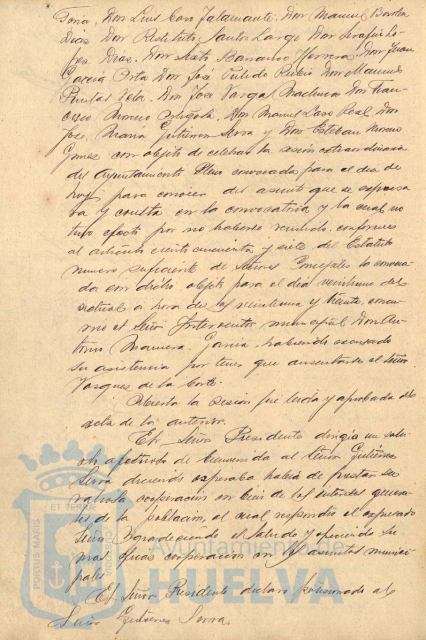 Toria, Don Luis Caro Jalamante, Don Manuel Bordon
Dias Don Restituto Santos Largo Don Serafin Lo-
pes Dias. Don Sixto Banando Herrera, Don Juan
Garcia Orta Don José Pulido Rubio Don Manuel
Puntas Vela. Don José Vargas Machuca Don Fran-
cisco Moreno Ortigosa Don Manuel Laso Real, Don
José Maria Gutierres Serra y Don Esteban Moreno
Gomes con objeto de celebrar la sesión extraordinaria
del Ayuntamiento Pleno convocada para el dia de
hoy para conocer del asunto que se expresa-
ra y consta en la convocatoria y la cual no
tuvo efecto por no haberse reunido, conforme
al articulo ciento cincuenta y siete del Estatuto
numero suficiente de señores Concejales la convoca-
da con dicho objeto para el dia veintiuno del
actual a hora de las veintiuna y treinta,
el Señor Interventor municipal Don An-
tonio Garcia habiendo excusado
su asistencia por tener que ausentarse el Señor
Vasques de la Corte.
Abierta la sesión fué leida y aprobada el
acta de la anterior.
El Señor Presidente dirigió un salu-
do afectuoso de bienvenida al Señor Gutiérres
Serra diciendo esperaba habia de prestar su
valiosa cooperación en bien de los intereses genera-
les de la población, al cual respondio el expresado
Señor agradeciendo el saludo y ofreciendo su
mas eficas cooperación en los asuntos munici-
pales
El Señor Presidente declaro posesionado al
Señor Gutierres Serra.
PORTUS MARIS
ET TERRÆ
Ayuntamiento
HUELVA